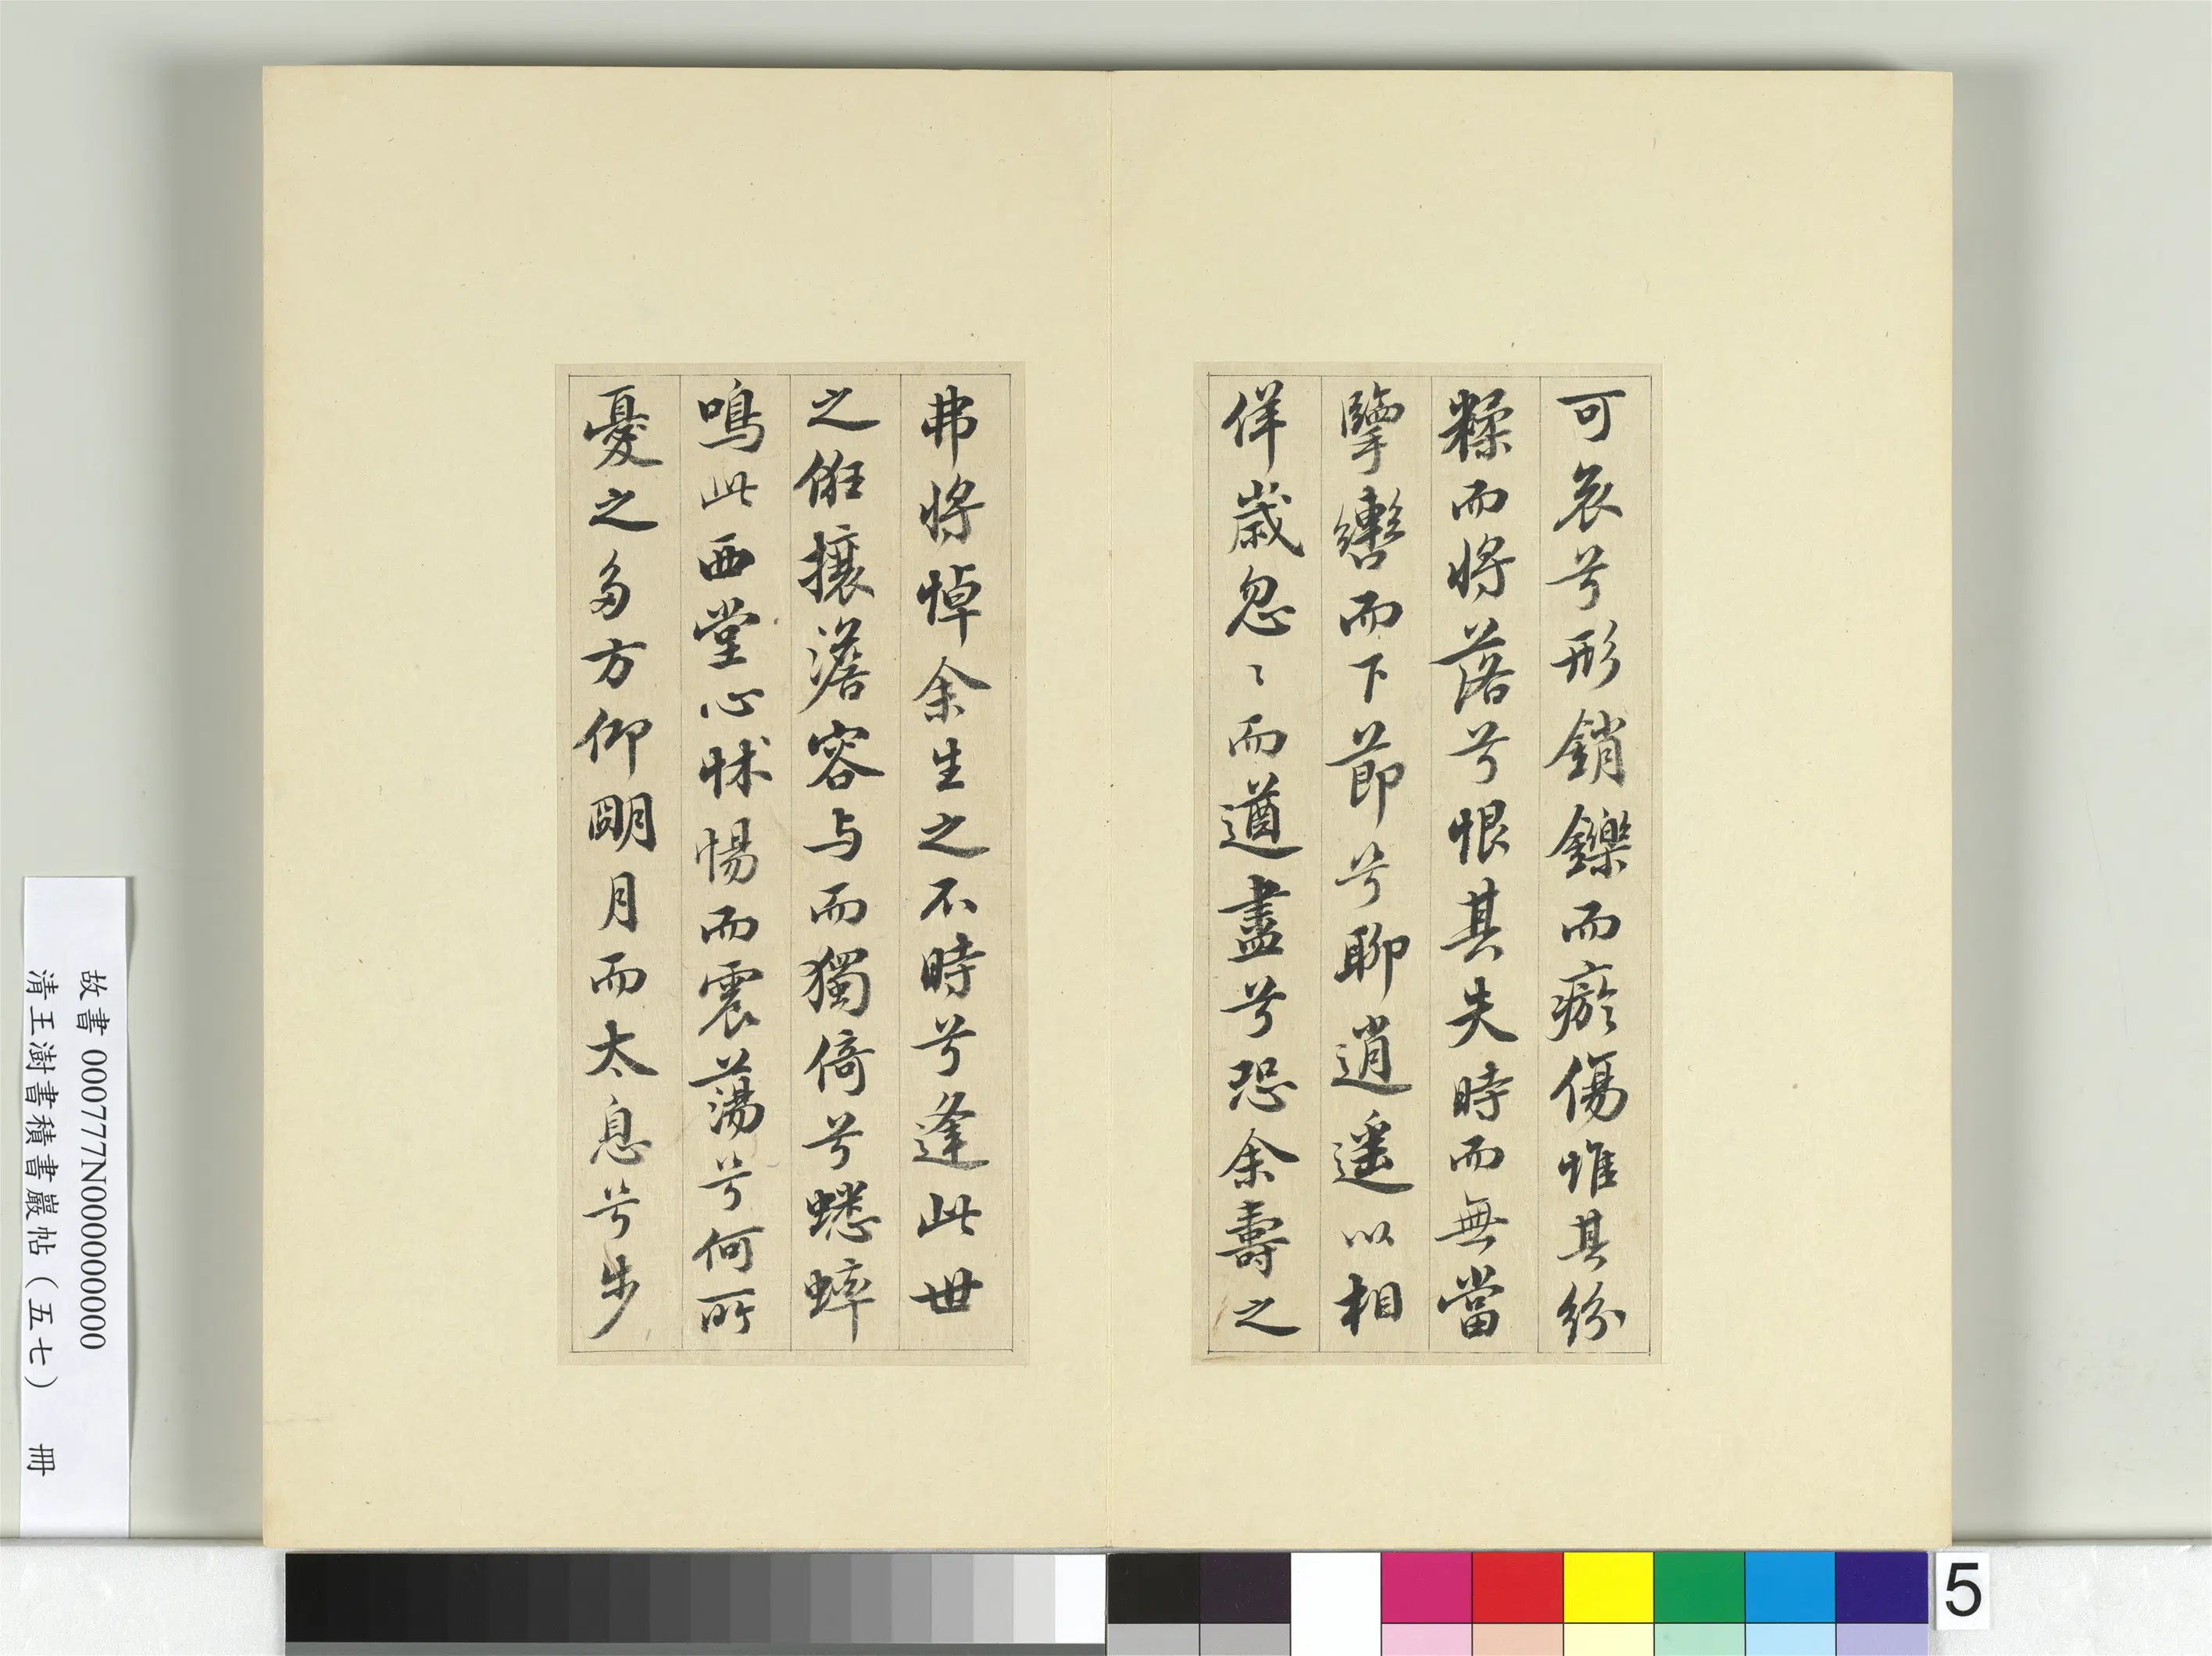 可哀兮形銷鑠而瘀傷惟其紛
糅而將落兮恨其失時而無當
擥轡而下莭兮聊逍遥以相
佯歲忽〻而遒盡兮恐余壽之
弗將悼余生之不時兮逢此世
之俇攘澹容与而獨倚兮蟋蟀
鳴此西堂心怵惕而震蕩兮何所
憂之多方仰朙月而太息兮步
故書 000777N000000000
清王澍書積書巖帖（五七） 冊
5